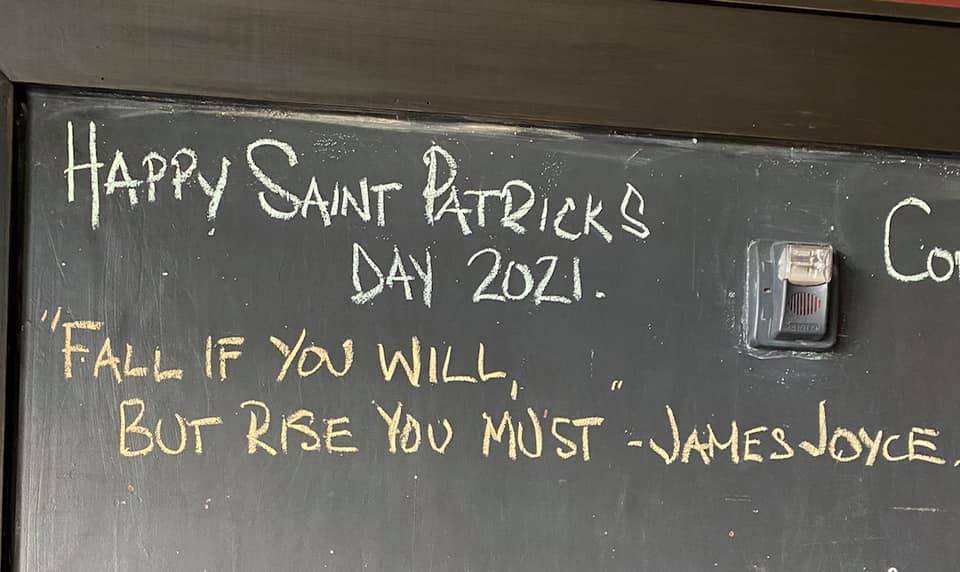 HAPPY SAINT PATRICKS
DAY 2021.
"FALL IF YOU WILL,
BUT RISE YOU MUST" -JAMES JOYCE.